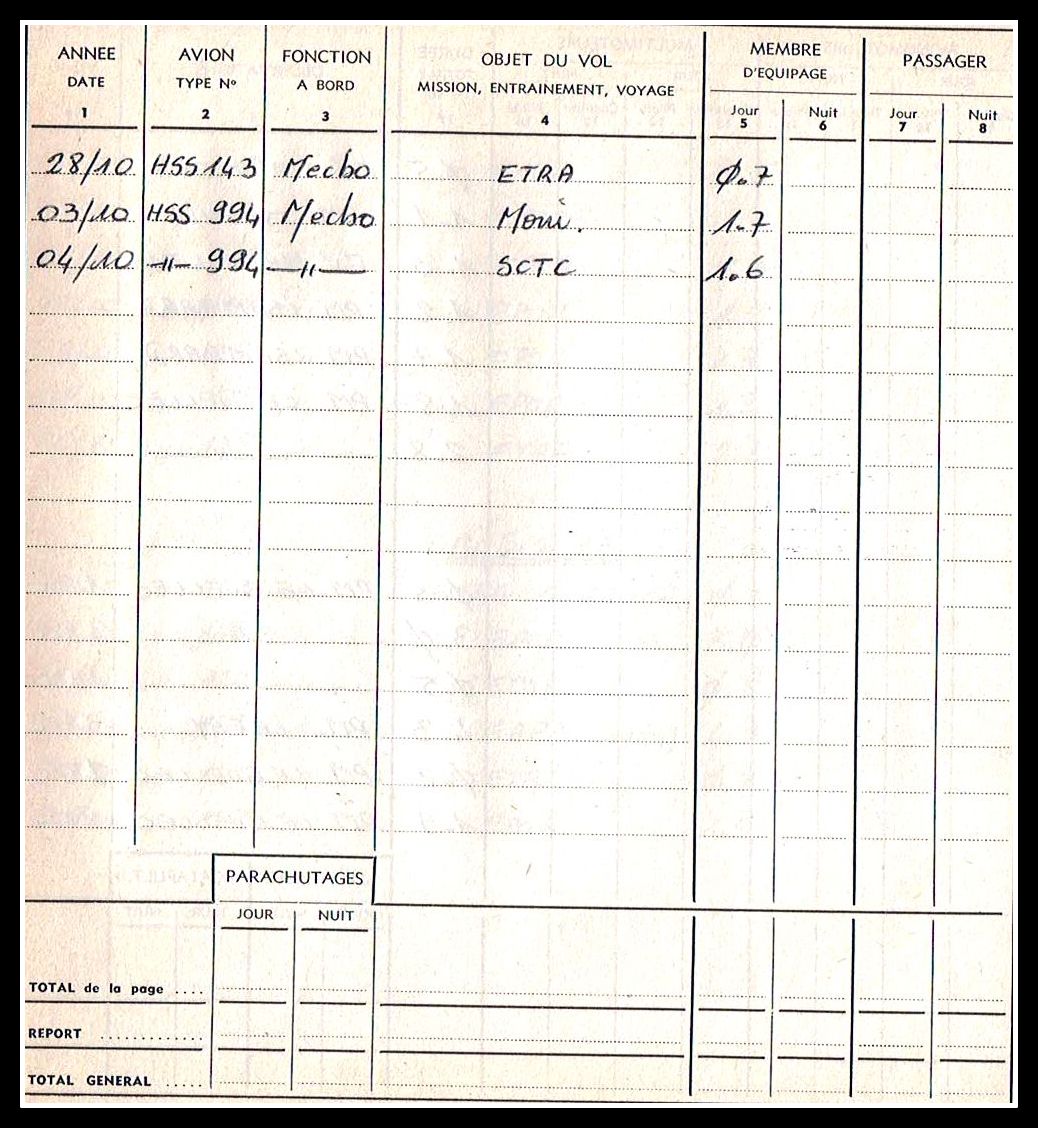 ANNEE AVION FONCTION OBJET DU VOL MEMBRE PASSAGER
DATE TYPE Nº A BORD MISSION, ENTRAINEMENT, VOYAGE D'EQUIPAGE
Jour Nuit Jour Nuit
1 2 3 4 5 6 7 8
28/10 HSS 143 Mecbo ETRA Ø.7
03/10 HSS 994 Mecbo 1.7
04/10 -〃- 994 -〃- SCTC 1.6
PARACHUTAGES
JOUR NUIT
TOTAL de la page ....
REPORT .............
TOTAL GENERAL .....